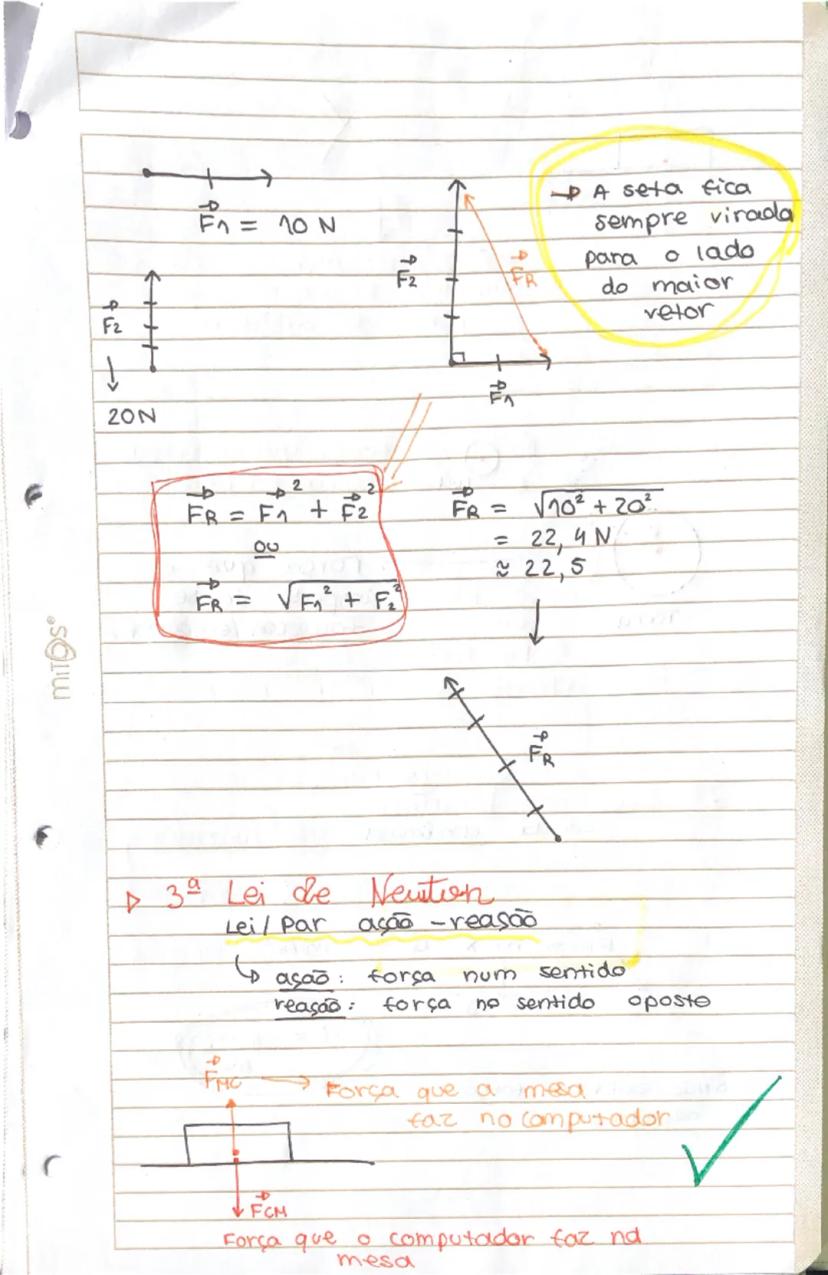 F₁ = 10 N
F₂
20N
F₂
FR
F₁
→ A seta fica
sempre virada
para o lado
do maior
vetor
FR = F₁² + F₂²
ou
FR = √F₁² + F₂²
FR = √10² + 20²
= 22,4 N
≈ 22,5
FR
mitos®
▷ 3ª Lei de Newton
Lei / Par ação - reasão
↳ ação: força num sentido
reação: força no sentido oposto
FMC → Força que a mesa
faz no computador
FCM
Força que o computador faz na
mesa